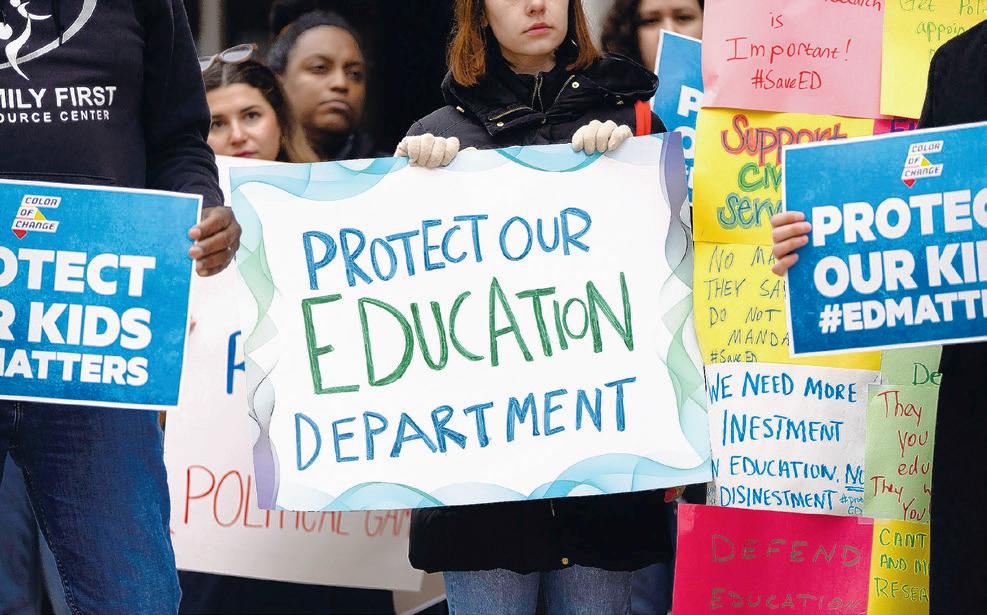 MILY FIRST
OURCE CENTER
COLOR
OF
CHANGE
OTECT
R KIDS
MATTERS
PROTECT OUR
EDUCATION
DEPARTMENT
POLITICAL GAM
is
Important!
#SaveED
Support
Serv
NO MA
THEY SA
DO NOT
MANDA
#SaveED
WE NEED MORE
INESTMENT
N EDUCATION, NO
DISINESTMENT
DEFEND
EDUCATION
COLOR
OF
CHANGE
PROTEC
OUR KI
#EDMATT
De
They
you
edu
They
You
CANT
AND M
RESEA